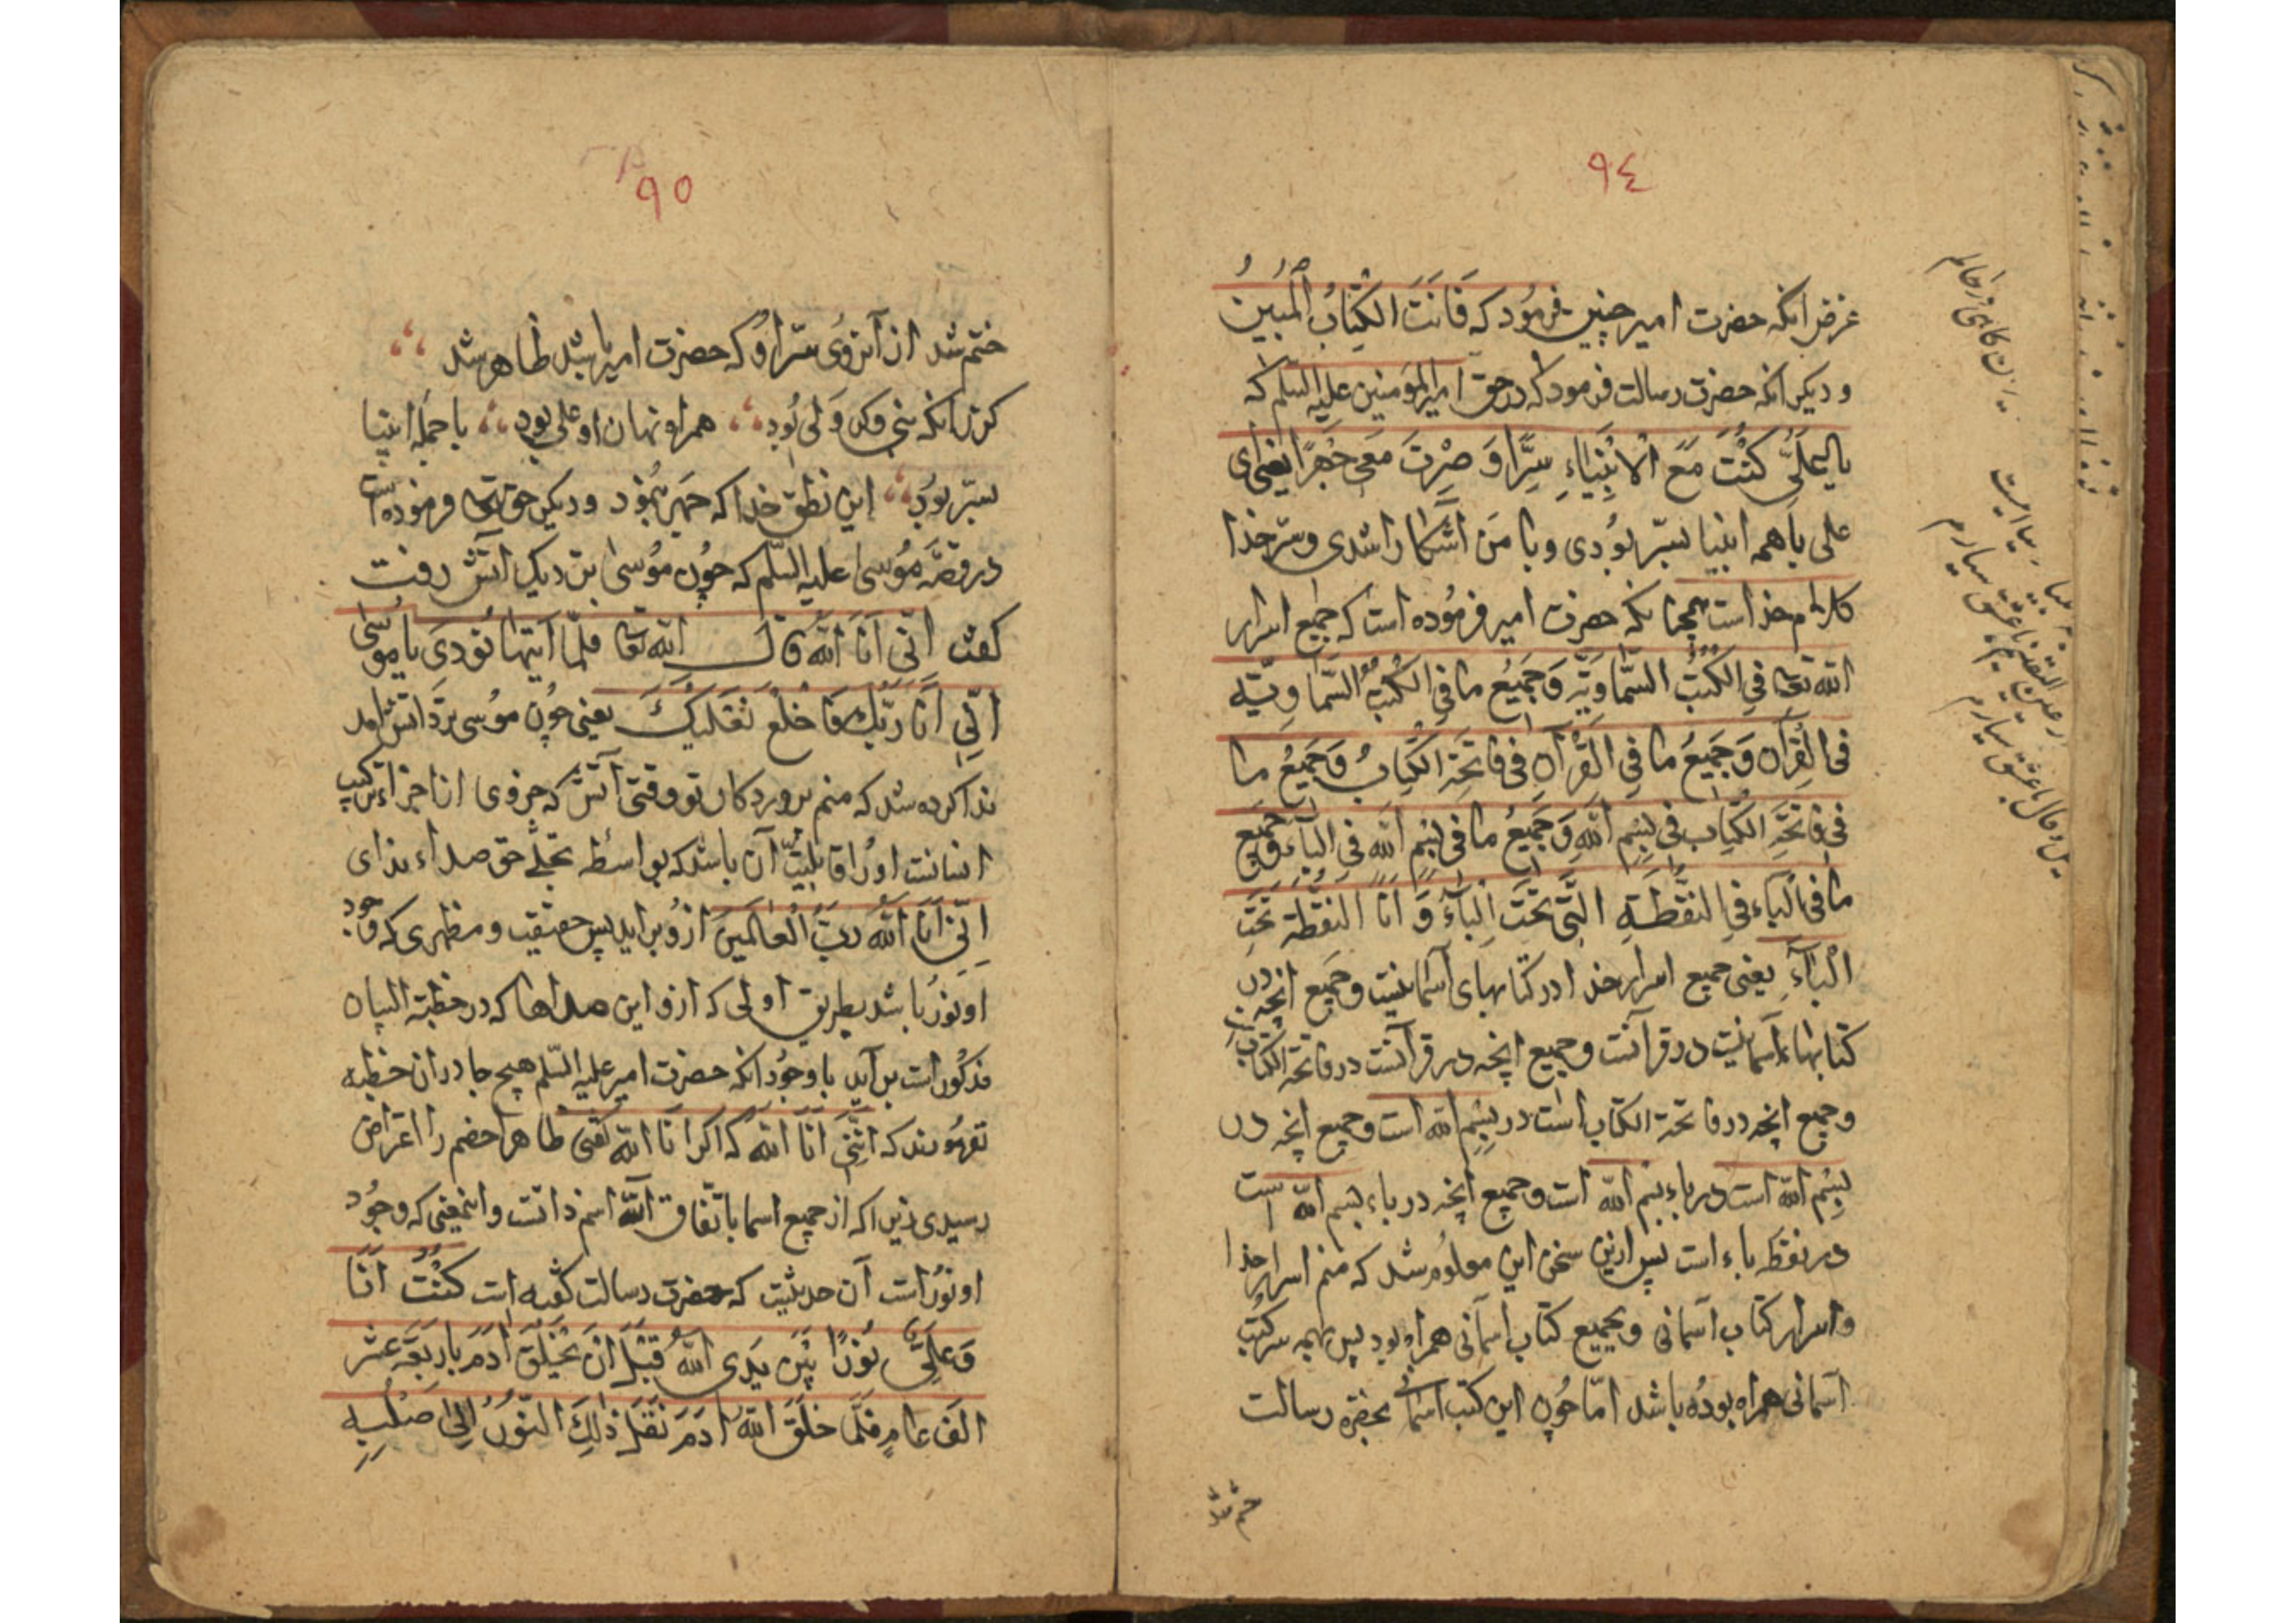 ٩٤
غرض انكه حضرت امير چنين فرمود كه فَاَنتَ الكِتَابُ المُبينُ
و ديكر انكه حضرت رسالت فرمود كه در حق امير المؤمنين عليه السلم كه
يا عَلىُّ كُنْتَ مَعَ الاَنْبِيَاءِ سِرًّا وَ صِرْتَ مَعى جَهرًا يعنى اى
على با همه انبيا بسّر بُودى و با من آشكارا شدى و سّر خدا
كلام خداست همچنا نكه حضرت امير فرمُوده است كه جميع اسرار
الله تعا فى الكتب السّماويّة وَ جَميعُ ما فى الكُتُب السّماويّه
فى القُرآن وَ جَميعُ ما فى القُرآن فى فاتحَة الكتابُ وَ جَميعُ ما
فى فاتحَة الكتاب فى بِسْم اللهِ وَ جَميعُ ما فى بِسْم الله فى البآء و جميع
ما فى الباء فى النقطَةِ الّتى تَحْتَ البآءَ وَ اَنَا النقطَة تَحتَ
الْبآءِ يعنى جميع اسرار خدا در كتابهاى آسمانيست و جميع انچه در
كتابهاء آسمانيست در قرآنست و جميع انچه در قرآنست در فاتحة الكتاب
و جميع انچه در فاتحة الكتاب است در بِسْمِ الله است و جميع انچه در
بِسْمِ الله است در باء بسم الله است و جميع انچه در باء بسم الله است
در نقطه باء است پس ازين سخن اين معلوم شد كه منم اسرار خدا
و اسرار كتاب آسمانى و بجميع كتاب آسمانى همراه بود پس بهمه سر كتب
آسمانى همراه بوده باشد امّا چُون اين كتب اسمانى بحضرة رسالت
ختم شد
٩٥
ختم شد از آنروُى سّر او كه حضرت امير باشد ظاهر شد
كر زانكه نبى و كر وَلى بُود همراه نهان او على بود با جمله انبيا
بسّر بُود اين نطق خدا كه جهر بنمُود و ديكر حق تعا فرموده است
در قصّه مُوسى عليه السّلم كه چُون مُوسى بنزديك آتش رفت
كفت انّى اَنَا اللّه قال الله تعا فلمّا اتيها نُودِىَ يا مُوسى
انّى اَنَا رَبُّكَ فَاخْلَعْ نَعْلَيْكَ يعنى چُون مُوسى بر اتش امد
ندا كرده شد كه منم پروردكار تو وقتى آتش كه جزوى از اجزاء تركيب
انسانست اورا قابليّت آن باشد كه بواسطه تجلّى حق صداء نداى
اِنّى اَنَا اللهُ رَبُّ الْعَالَمينَ ازو برايد پس حقيقت و مظهرى كه وجود
او نُور باشد بطريق اولى كه ازو اين صداها كه در خطبة البيان
مذكُور است بر آيد با وجُود انكه حضرت امير عليه السّلم هيچ جا در ان خطبه
نفرمُودند كه اِنّنى اَنَا الله كه اكر اَنَا الله كفتى ظاهرا خصم را اعتراض
رسيدى زيرا كه از جميع اسما باتّفاق اللّه اسم ذاتست و اينمعنى كه وجُود
او نُور است آن حديثيت كه حضرت رسالت كفته است كُنْتُ اَنَا
وَ عَلىٌّ نُورًا بَيْنَ يَدَى الله قَبْلَ اَنْ يَخْلُقَ آدَمَ باَرْبَعَة عَشَرَ
الفَ عامٍ فَلَمَّا خَلَقَ اللّهُ آدَمَ نَقَلَ ذٰلِكَ النُّورُ اِلىٰ صُلْبِهِ